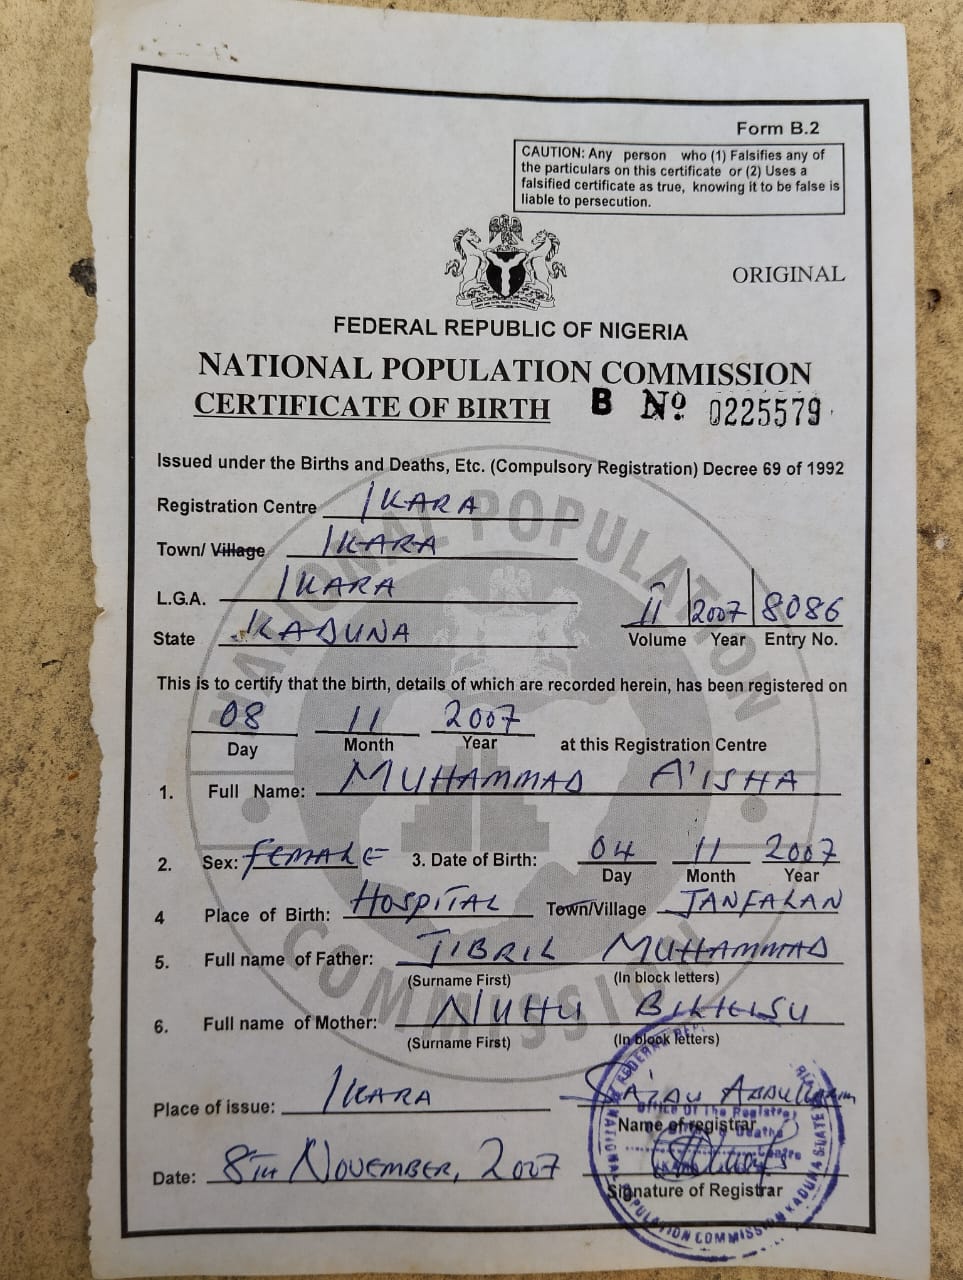 Form B.2
CAUTION: Any person who (1) Falsifies any of
the particulars on this certificate or (2) Uses a
falsified certificate as true, knowing it to be false is
liable to persecution.
ORIGINAL
FEDERAL REPUBLIC OF NIGERIA
NATIONAL POPULATION COMMISSION
CERTIFICATE OF BIRTH B No 0225579
Issued under the Births and Deaths, Etc. (Compulsory Registration) Decree 69 of 1992
Registration Centre IKARA
Town/ Village IKARA
L.G.A. IKARA
State KADUNA
II 2007 8086
Volume Year Entry No.
This is to certify that the birth, details of which are recorded herein, has been registered on
08 11 2007
Day Month Year at this Registration Centre
1. Full Name: MUHAMMAD A'ISHA
2. Sex: FEMALE 3. Date of Birth: 04 11 2007
Day Month Year
4 Place of Birth: HOSPITAL Town/Village JANFALAN
5. Full name of Father: JIBRIL MUHAMMAD
(Surname First) (In block letters)
6. Full name of Mother: NUHU BILKISU
(Surname First) (In block letters)
Place of issue: IKARA
Name of registrar
Date: 8TH NOVEMBER, 2007
Signature of Registrar
NATIONAL POPULATION COMMISSION
Office Of The Registrar
POPULATION COMMISSION KADUNA STATE